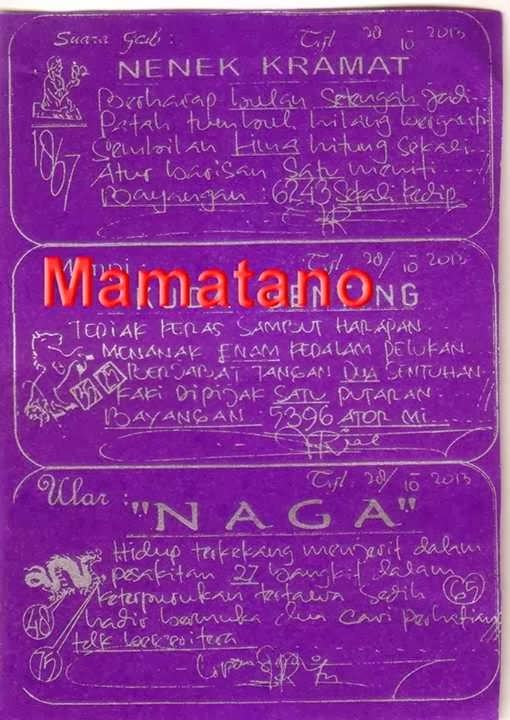 Suara Gaib : Tgl 20/10 2013
NENEK KRAMAT
Berharap bulan Setengah Jadi
Patah tumbuh hilang berganti
Sembilan Lima hitung sekali
Atur barisan Satu meniti
Bayangan : 6243 Sekali kedip
18/67
Mimpi : Tgl. 20/10 2013
Mamatano
NG
TERIAK KERAS SAMBUT HARAPAN
MENANAK ENAM KEDALAM PELUKAN
BERJABAT TANGAN DUA SENTUHAN
KAKI DIPIJAK SATU PUTARAN
BAYANGAN 5396 ATOR MI
Ular : Tgl. 20/10 2013
"NAGA"
Hidup terkekang menjerit dalam
pesakitan 27 bangkit dalam
keterpurukan tertawa sedih 65
40 hadir bermuka dua cari perhatian
tak bercerita
75